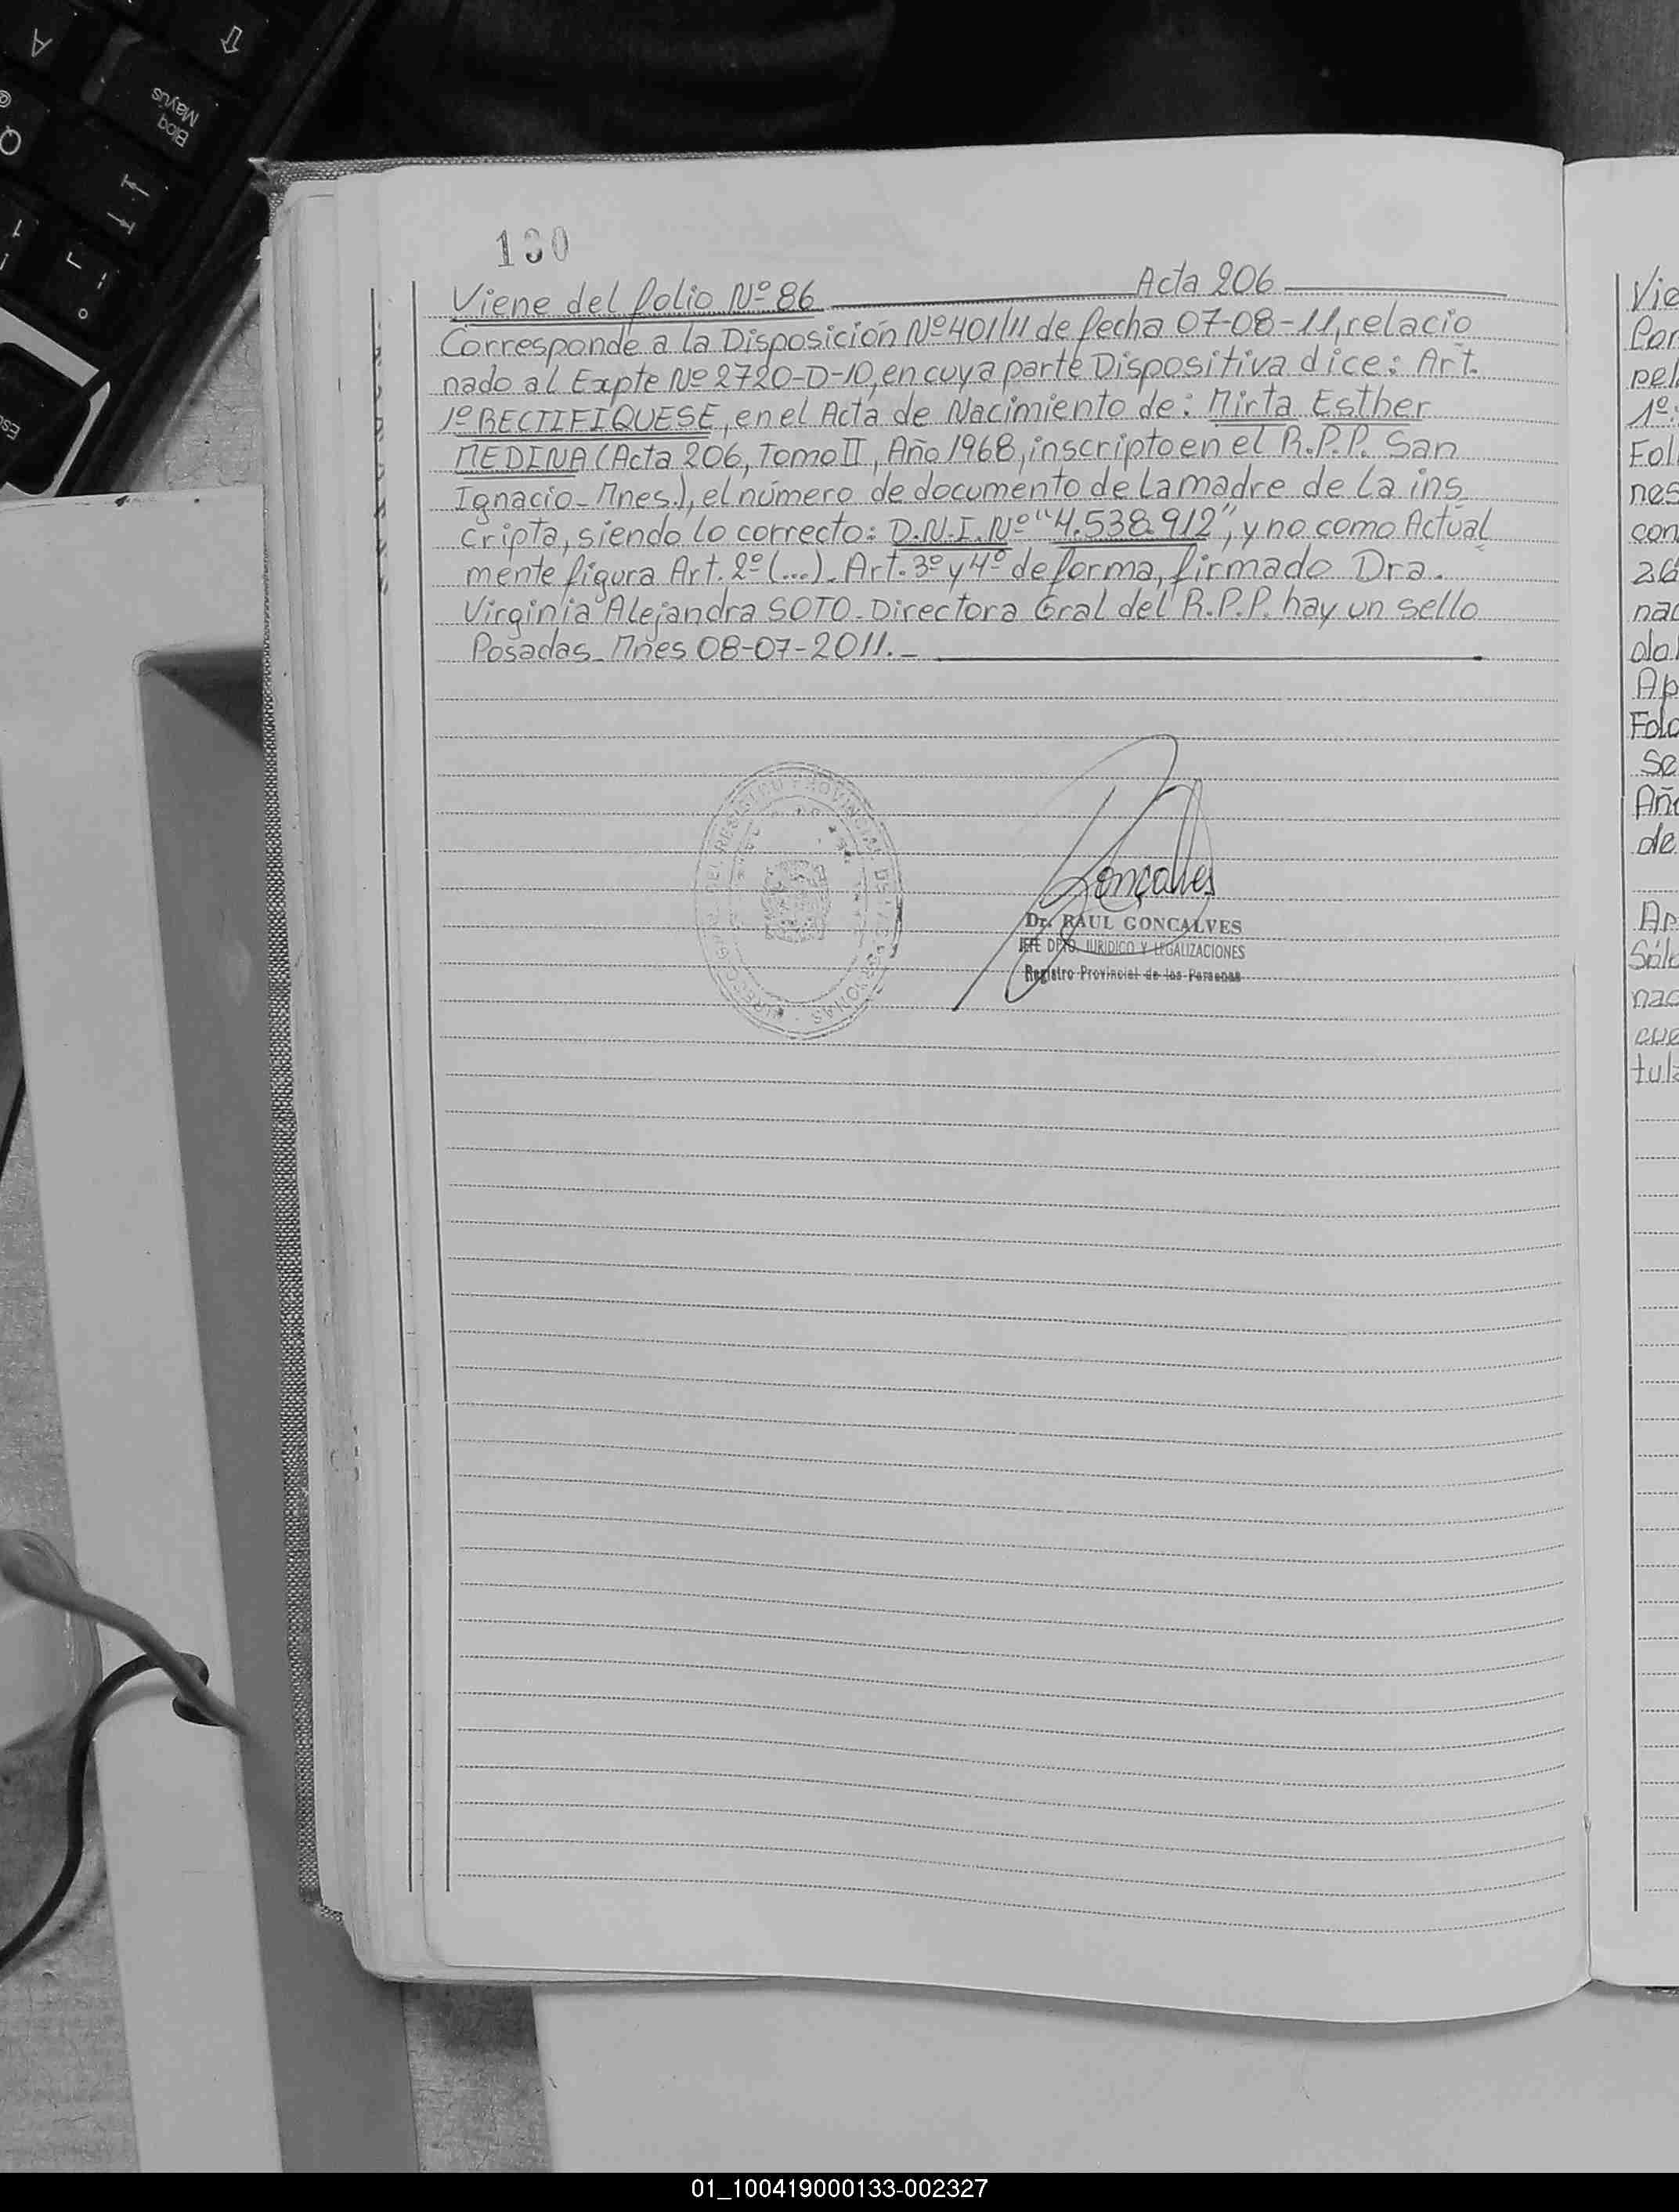 130
Viene del folio Nº 86 Acta 206
Corresponde a la Disposición Nº 401/11 de fecha 07-08-11, relacio
nado al Expte Nº 2720-D-10, en cuya parte Dispositiva dice: Art.
1º RECTIFIQUESE, en el Acta de Nacimiento de: Mirta Esther
MEDINA (Acta 206, Tomo II, Año 1968, inscripto en el R.P.P. San
Ignacio - Mnes.), el número de documento de la madre de la ins
cripta, siendo lo correcto: D.N.I. Nº "4.538.912", y no como Actual
mente figura Art. 2º (...). Art. 3º y 4º de forma, firmado Dra.
Virginia Alejandra SOTO - Directora Gral del R.P.P. hay un sello
Posadas - Mnes 08-07-2011.-
Goncalves
Dr. RAUL GONCALVES
JEFE DPTO. JURIDICO Y LEGALIZACIONES
Registro Provincial de las Personas
DEL REGISTRO PROVINCIAL DE LAS PERSONAS
Vie
pel
1º
Fol
nes
con
26
nac
Ap
Folo
Se
Año
de
nac
cue
tula
Bloq
Mayus
A
Q
Esc
01_100419000133-002327